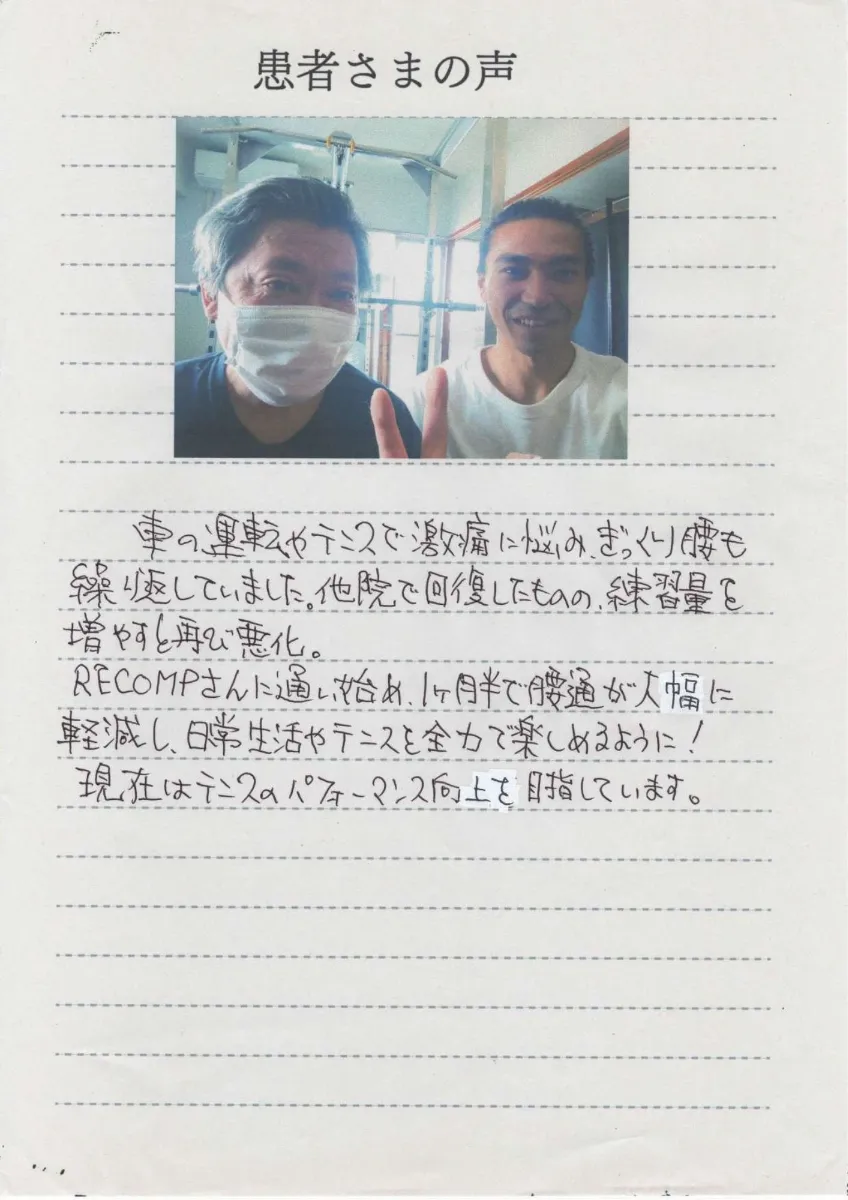 患者さまの声
車の運転やテニスで激痛に悩み、ぎっくり腰も
繰り返していました。他院で回復したものの、練習量を
増やすと再び悪化。
RECOMPさんに通い始め、1ヶ月半で腰通が大幅に
軽減し、日常生活やテニスを全力で楽しめるように!
現在はテニスのパフォーマンス向上を目指しています。